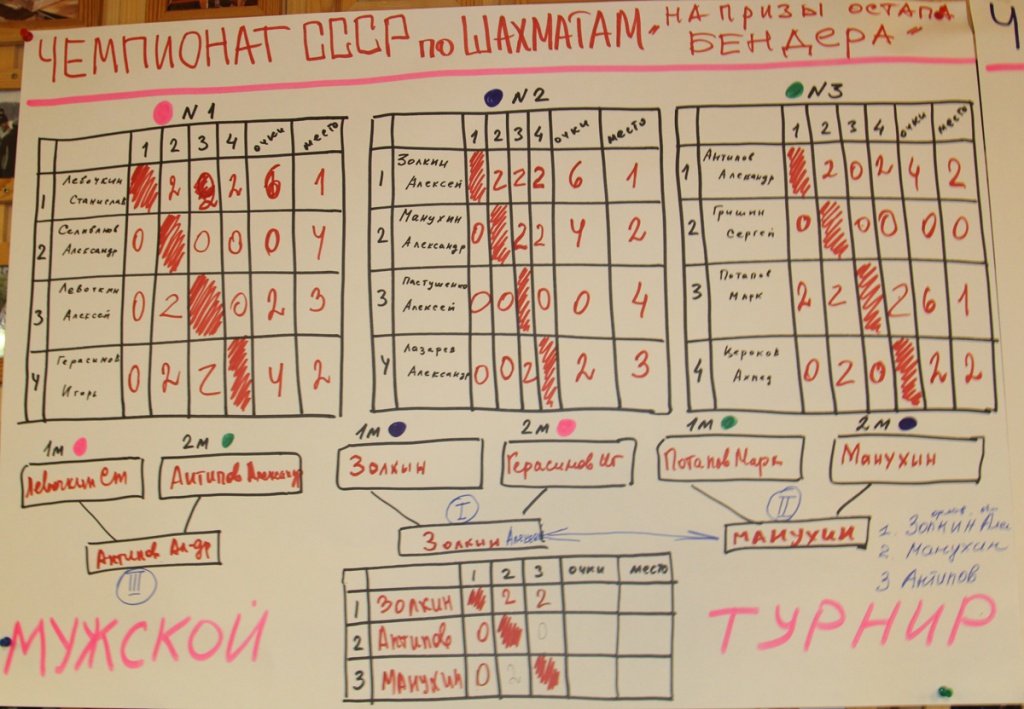 ЧЕМПИОНАТ СССР ПО ШАХМАТАМ "НА ПРИЗЫ ОСТАПА
БЕНДЕРА"
Ч
N1
1 2 3 4 очки место
1 Левочкин Станислав 2 2 2 6 1
2 Александр 0 0 0 0 4
3 Левочкин Алексей 0 2 0 2 3
4 Герасимов Игорь 0 2 2 4 2
N2
1 2 3 4 очки место
1 Золкин Алексей 2 2 2 6 1
2 Манухин Александр 0 2 2 4 2
3 Пастушенко Алексей 0 0 0 0 4
4 Лазарев Александр 0 0 2 2 3
N3
1 2 3 4 очки место
1 Антипов Александр 2 0 2 4 2
2 Гришин Сергей 0 0 0 0 0
3 Потапов Марк 2 2 2 6 1
4 0 2 0 2 2
1м 2м
Левочкин Ст Антипов Александр
Антипов Ал-др
III
1м 2м
Золкин Герасимов Иг
I
Золкин Алексей
1м 2м
Потапов Марк Манухин
II
МАНУХИН
1. Золкин Алек
2. Манухин
3 Антипов
1 2 3 очки место
1 Золкин 2 2
2 Антипов 0 0
3 Манухин 0 2
МУЖСКОЙ ТУРНИР